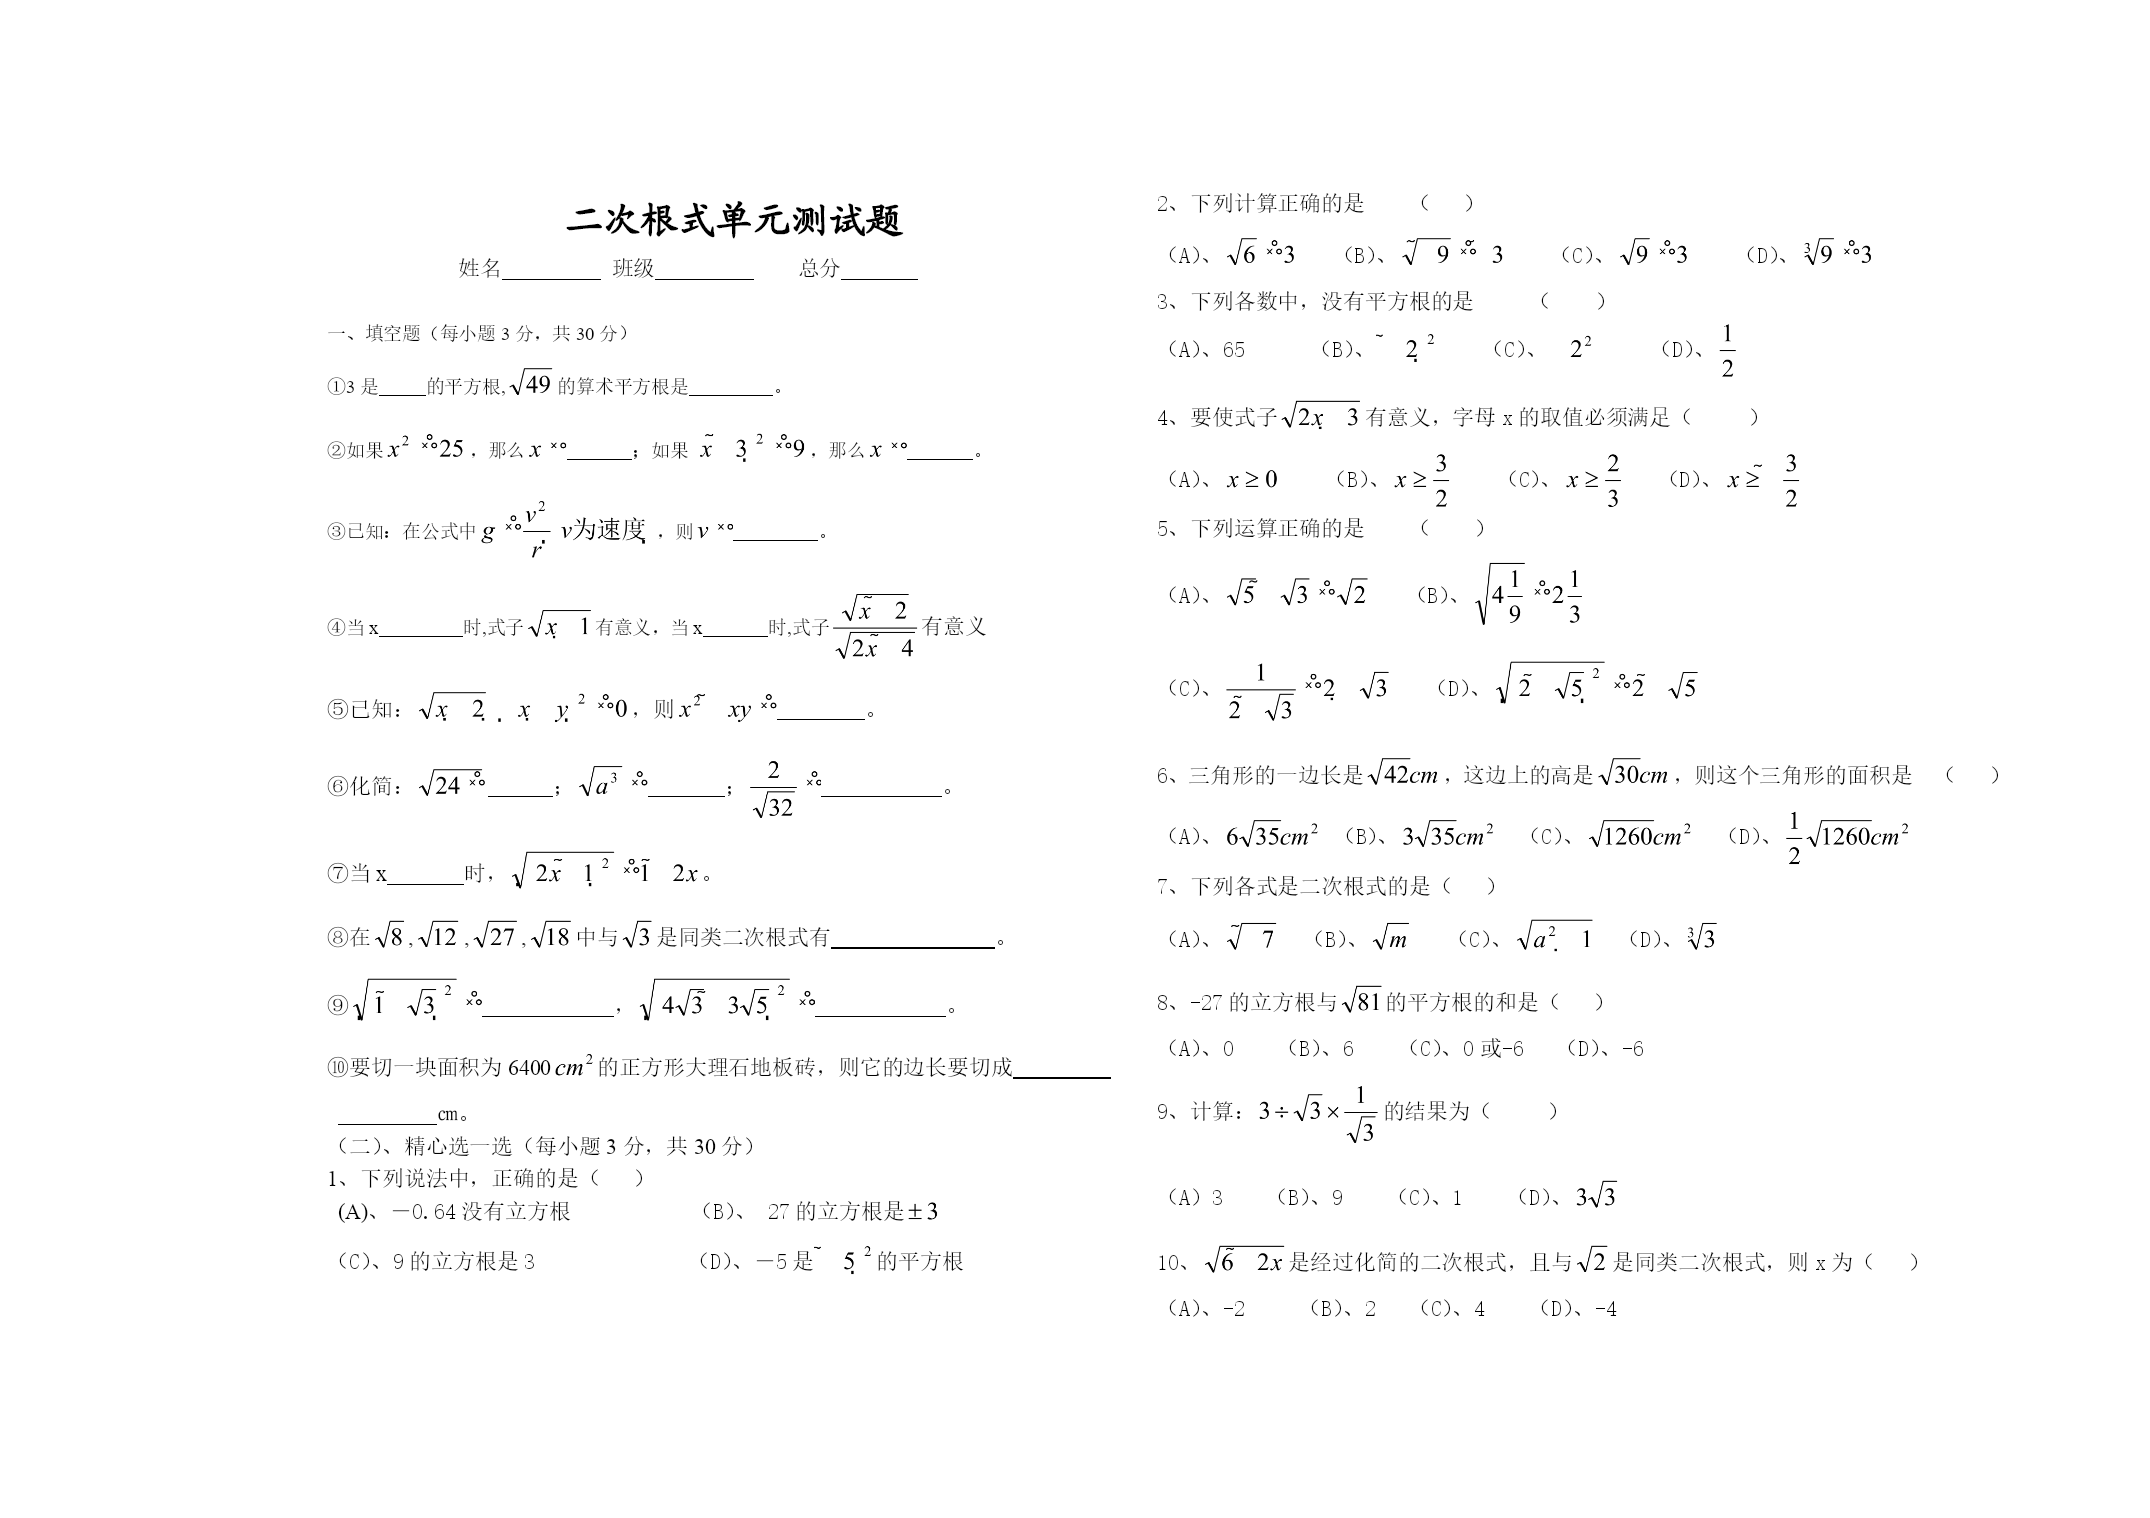 二次根式单元测试题
姓名_________ 班级_________ 总分_______
一、填空题（每小题 3 分，共 30 分）
①3 是_____的平方根,√49 的算术平方根是_________。
②如果 x² ×°°25，那么 x ×°_______；如果 x̃ 3 ² ×°°9，那么 x ×°_______。
③已知：在公式中 g ×°° v²/r v为速度，则 v ×°_________。
④当 x_________时,式子 √(x 1) 有意义，当 x_______时,式子 √(x ~ 2)/√(2x ~ 4) 有意义
⑤已知：√(x 2) x y ² ×°°0，则 x² ~ xy ×°°________。
⑥化简：√24 ×°°______；√a³ ×°°_______；2/√32 ×°°___________。
⑦当 x_______时，√(2x ~ 1 ²) ×°°~1 2x。
⑧在 √8 , √12 , √27 , √18 中与 √3 是同类二次根式有_______________。
⑨√(1 ~ √3 ²) ×°°____________，√(4√3 ~ 3√5 ²) ×°°____________。
⑩要切一块面积为 6400 cm² 的正方形大理石地板砖，则它的边长要切成_________
_________cm。
（二）、精心选一选（每小题 3 分，共 30 分）
1、下列说法中，正确的是（ ）
(A)、－0.64 没有立方根 （B）、 27 的立方根是±3
（C）、9 的立方根是 3 （D）、－5 是 ~ 5 ² 的平方根
2、下列计算正确的是 （ ）
（A）、√6 ×°°3 （B）、√(~ 9) ×°°~ 3 （C）、√9 ×°°3 （D）、∛9 ×°°3
3、下列各数中，没有平方根的是 （ ）
（A）、65 （B）、~ 2 ² （C）、 2² （D）、1/2
4、要使式子 √(2x 3) 有意义，字母 x 的取值必须满足（ ）
（A）、x ≥ 0 （B）、x ≥ 3/2 （C）、x ≥ 2/3 （D）、x ≥ ~ 3/2
5、下列运算正确的是 （ ）
（A）、√5 ~ √3 ×°°√2 （B）、√(4 1/9) ×°°2 1/3
（C）、1/(2 ~ √3) ×°°2 √3 （D）、√(2 ~ √5 ²) ×°°2 ~ √5
6、三角形的一边长是 √42cm，这边上的高是 √30cm，则这个三角形的面积是 （ ）
（A）、6√35cm² （B）、3√35cm² （C）、√1260cm² （D）、1/2 √1260cm²
7、下列各式是二次根式的是（ ）
（A）、√(~ 7) （B）、√m （C）、√(a² 1) （D）、∛3
8、-27 的立方根与 √81 的平方根的和是（ ）
（A）、0 （B）、6 （C）、0 或-6 （D）、-6
9、计算：3 ÷ √3 × 1/√3 的结果为（ ）
（A）3 （B）、9 （C）、1 （D）、3√3
10、√(6 ~ 2x) 是经过化简的二次根式，且与 √2 是同类二次根式，则 x 为（ ）
（A）、-2 （B）、2 （C）、4 （D）、-4